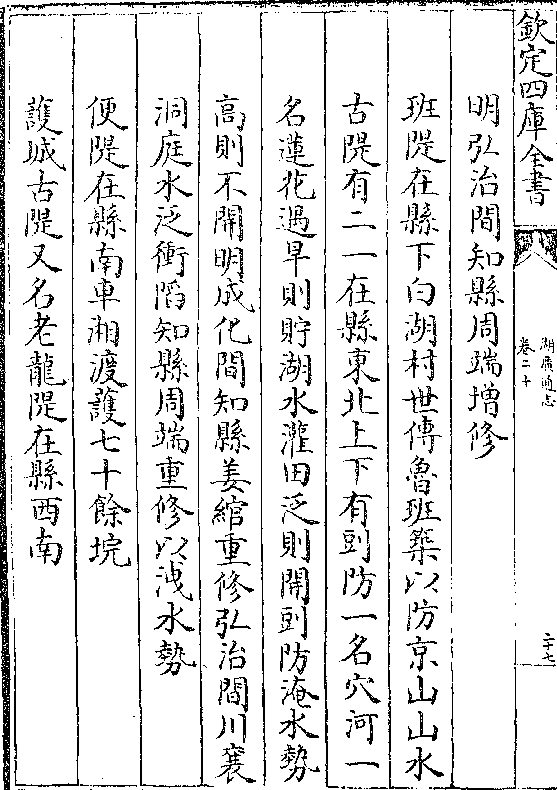 欽定四庫全書
湖廣通志
卷二十
二十七
明弘治間知縣周端增修
班隄在縣下白湖村世傳魯班築以防京山山水
古隄有二一在縣東北上下有剅防一名穴河一
名蓮花遇旱則貯湖水灌田泛則開剅防淹水勢
高則不開明成化間知縣姜綰重修弘治間川襄
洞庭水泛衝㴞知縣周端重修以洩水勢
便隄在縣南車湘渡護七十餘垸
護城古隄又名老龍隄在縣西南